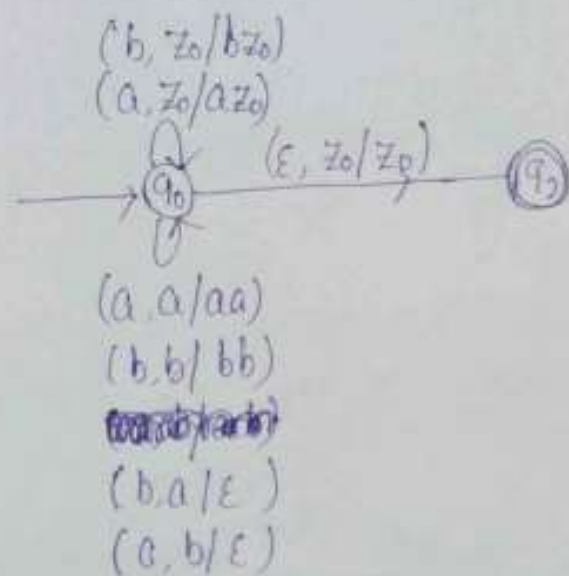 (b, z₀/bz₀)
(a, z₀/az₀)
(ε, z₀/z₀)
q₀
(a, a/aa)
(b, b/bb)
(b, a/ε)
(a, b/ε)